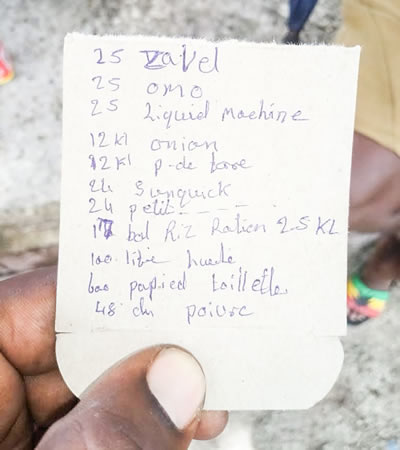 25 Javel
25 omo
25 Liquid Machine
12 kl onian
12 kl p-de tare
24 Sunquick
24 petit - - - -
17 bal Riz Ration 25 KL
100 litre huile
600 papied toilette
48 du poivre